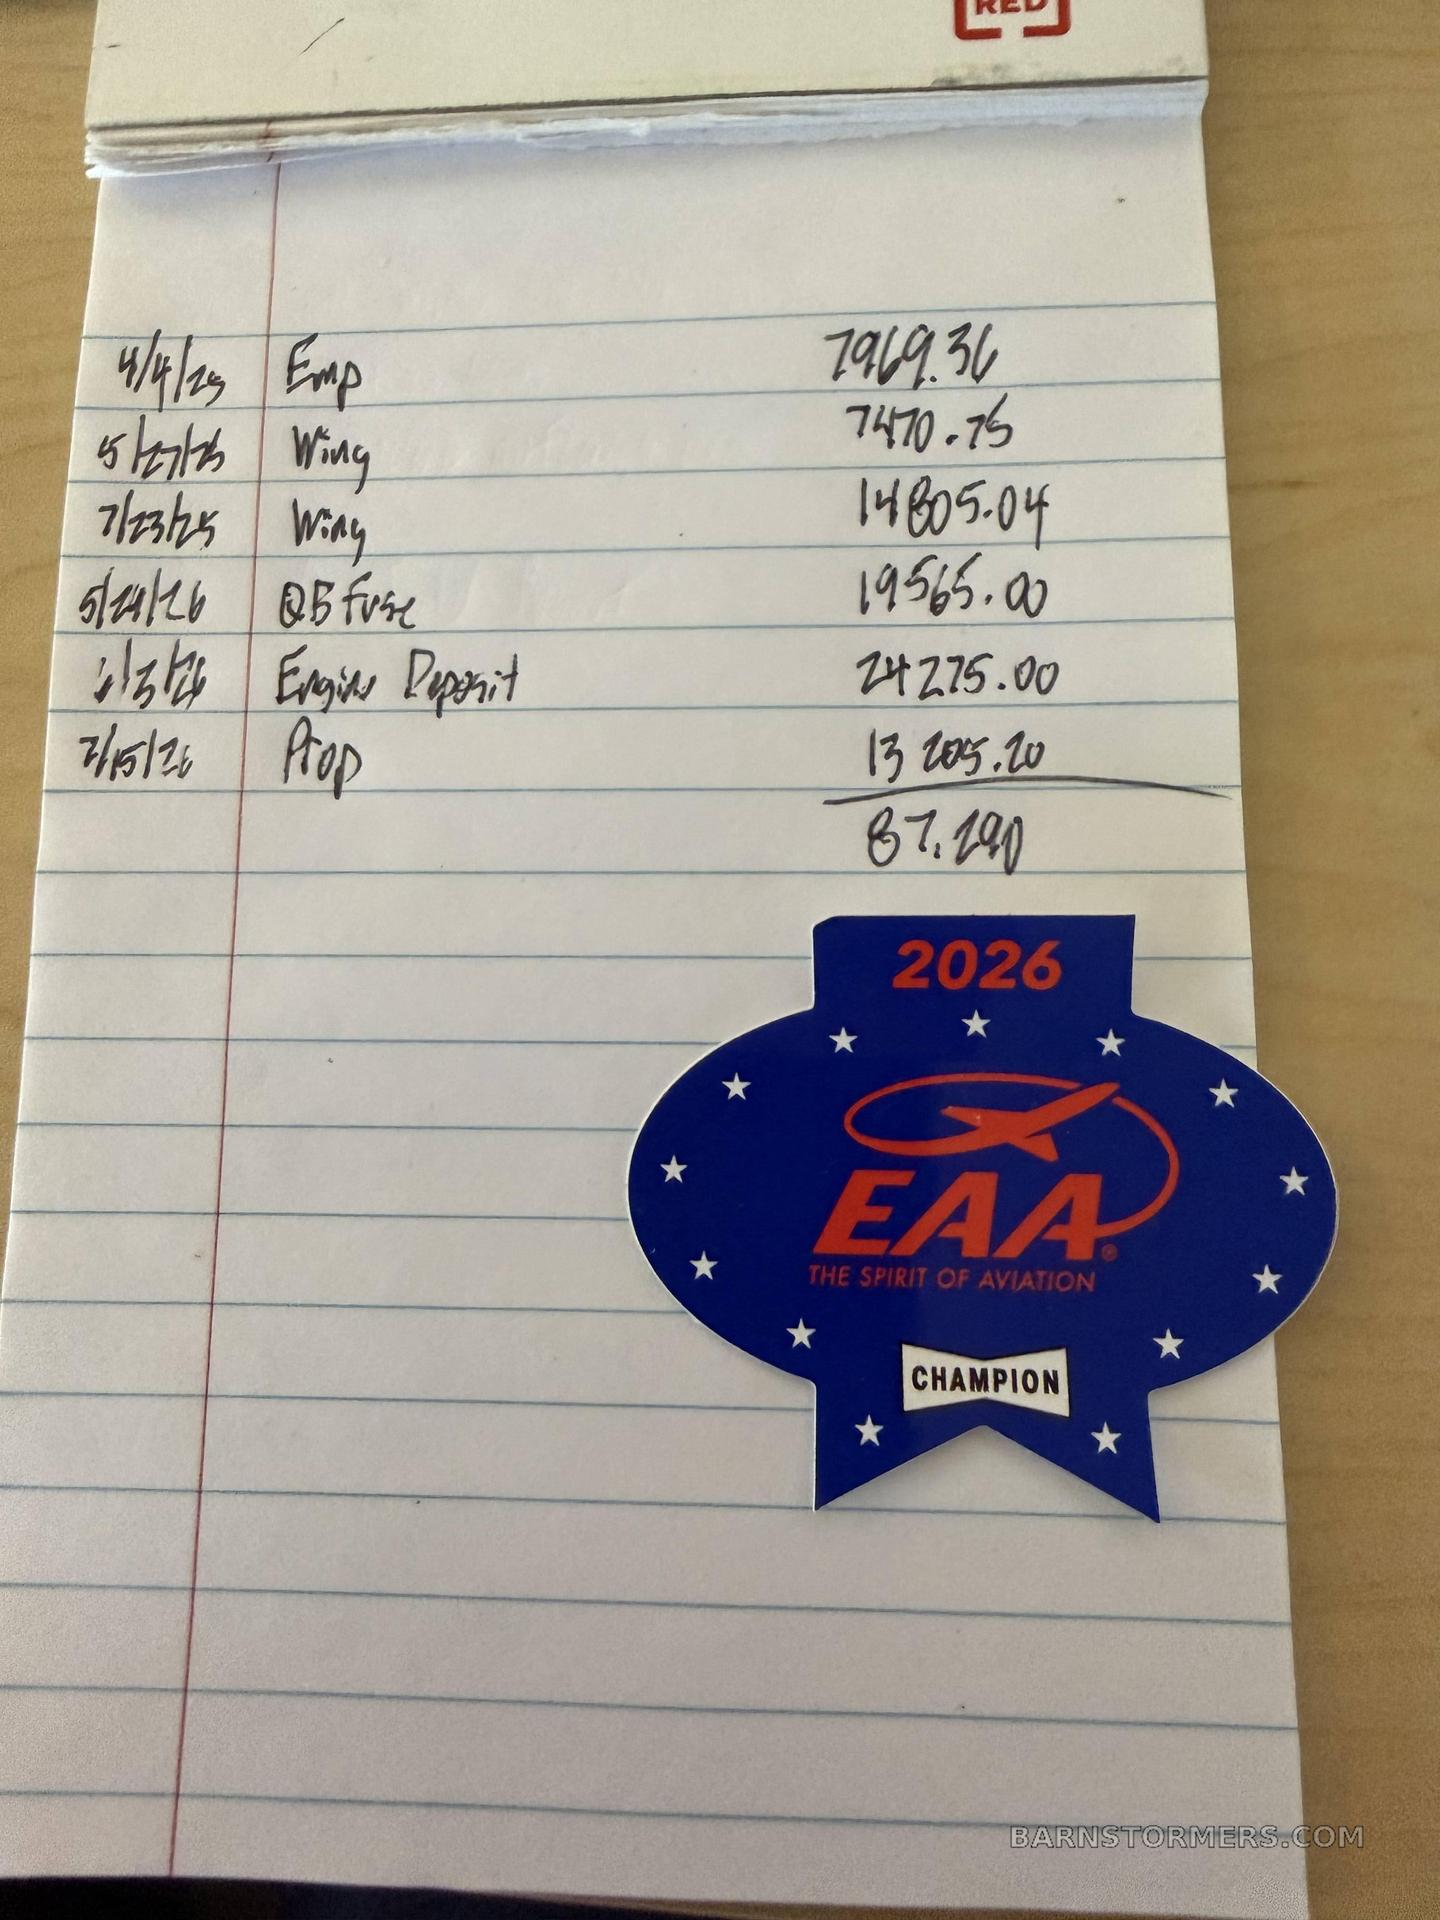 RED
4/4/25 Emp 7969.36
5/27/25 Wing 7470.75
7/23/25 Wing 14805.04
5/24/26 QB Fuse 19565.00
Engine Deposit 24275.00
2/15/26 Prop 13205.20
87,290
2026
EAA®
THE SPIRIT OF AVIATION
CHAMPION
BARNSTORMERS.COM